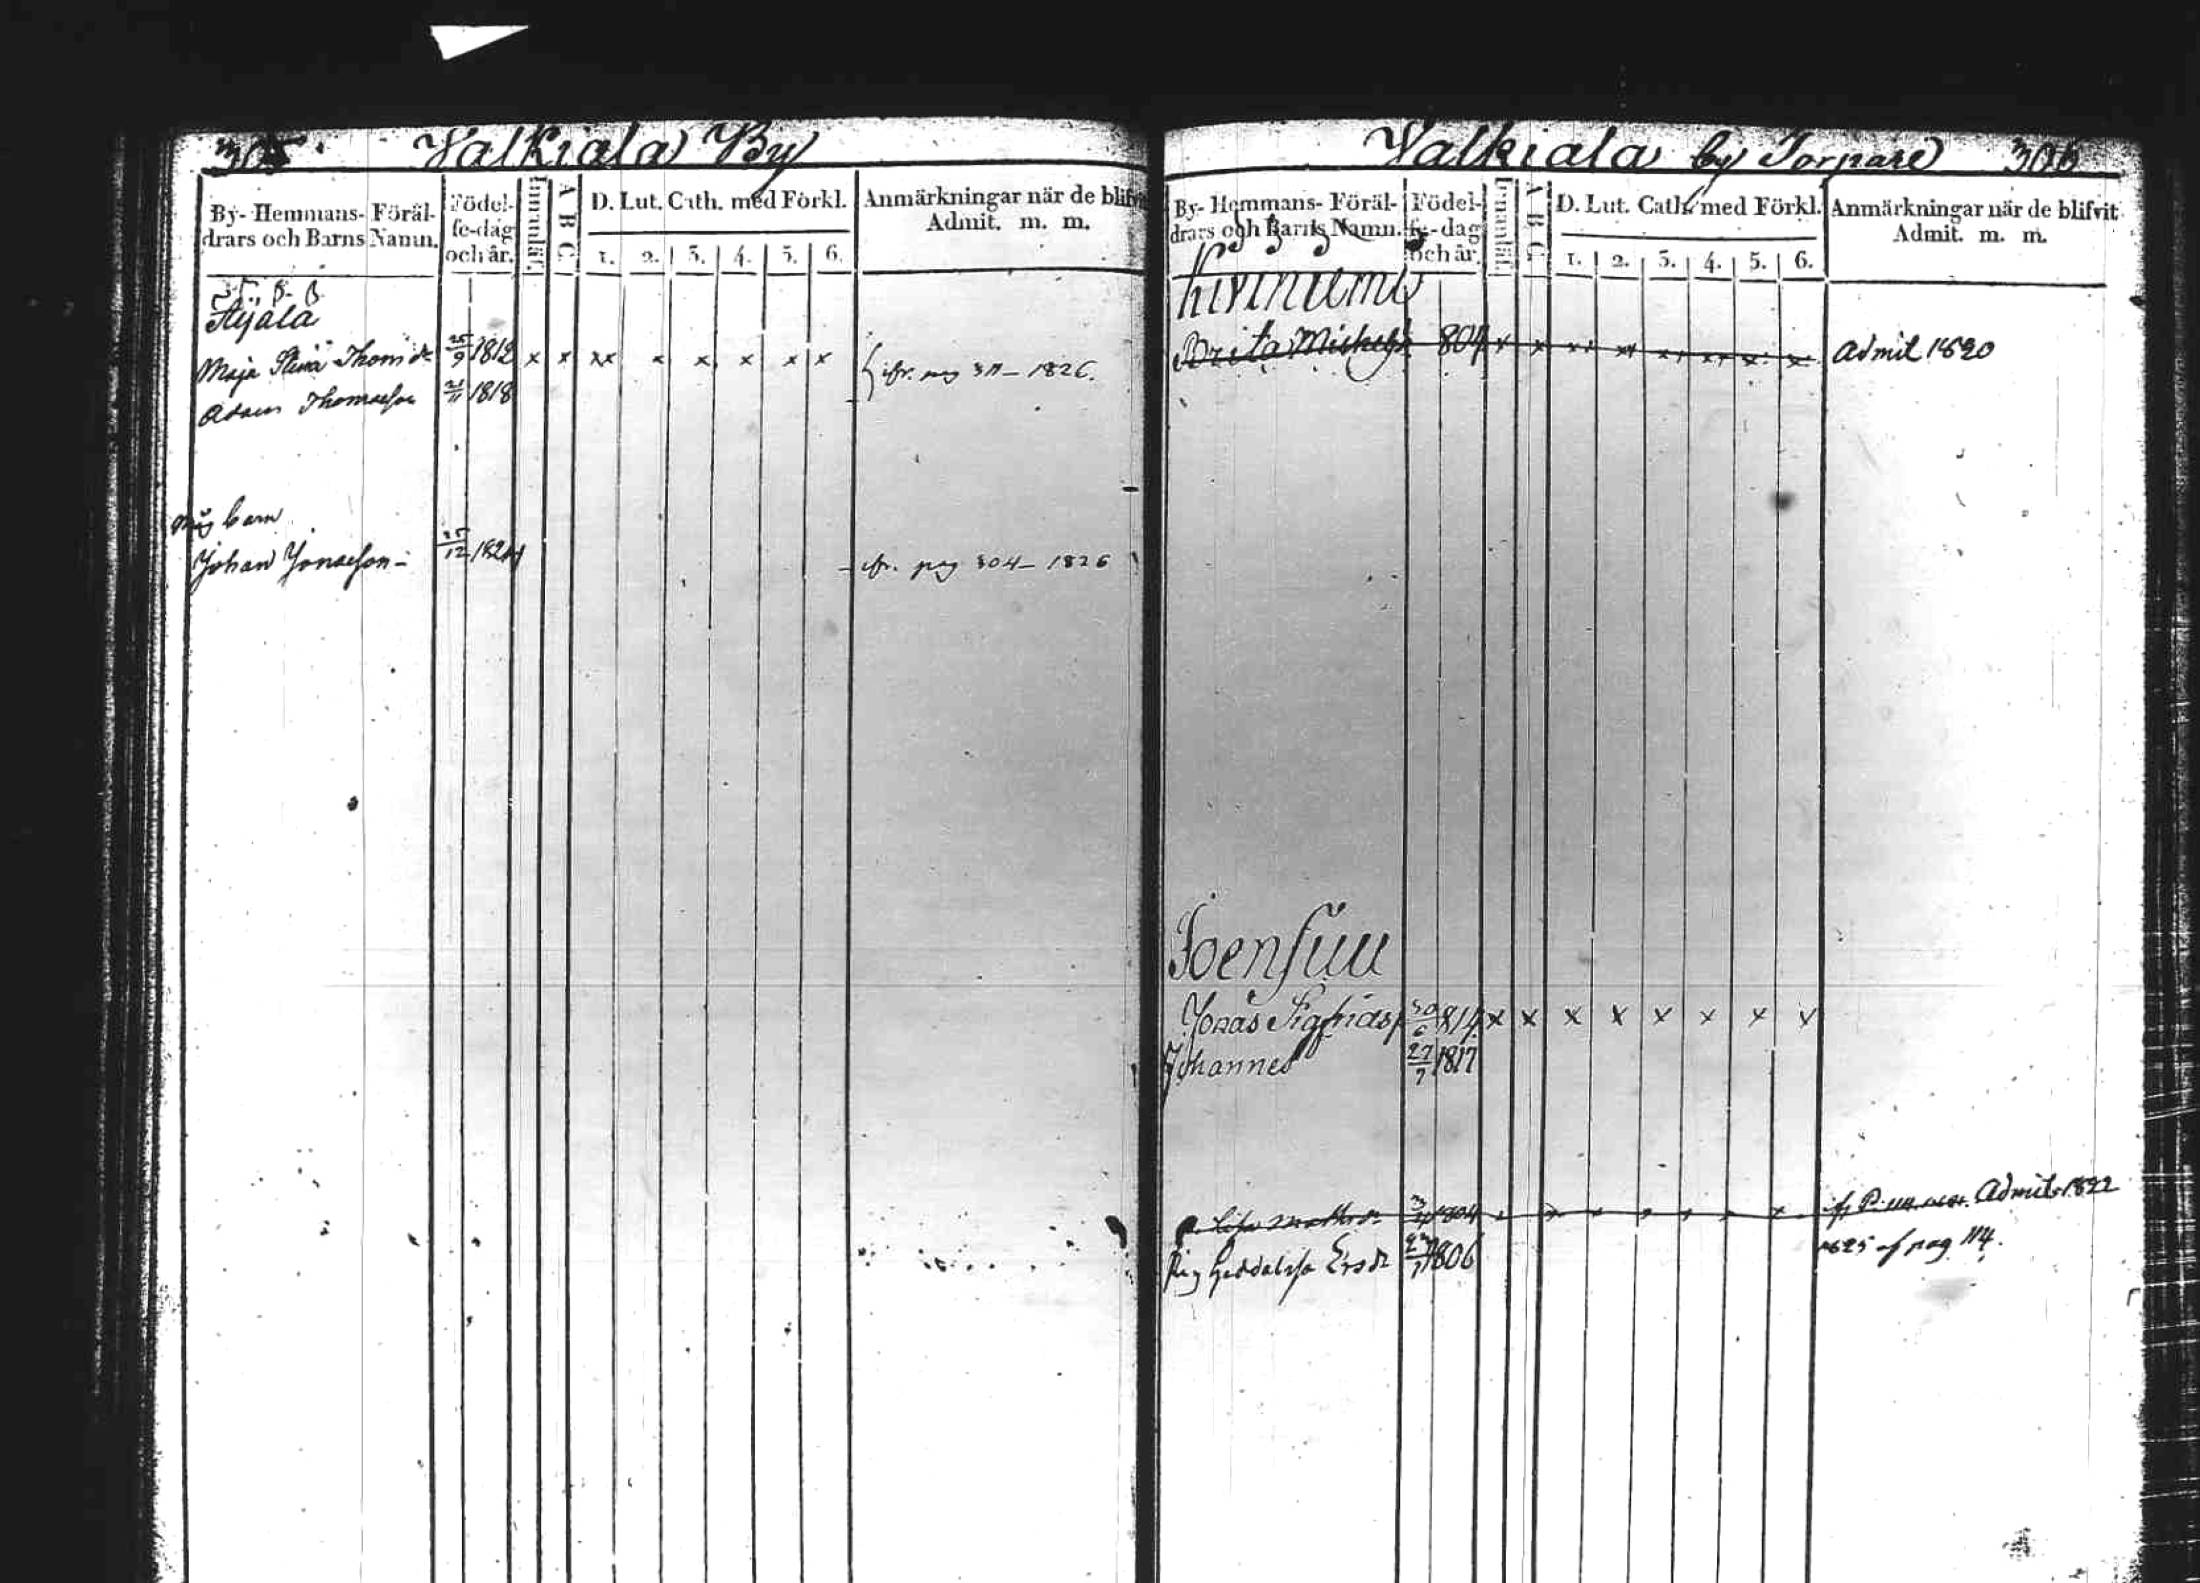 305. Valkiala By
By- Hemmans- Föräl-
drars och Barns Namn.
Födel-
se-dag
och år.
Innanläs.
A B C
D. Lut. Cath. med Förkl.
1. 2. 3. 4. 5. 6.
Anmärkningar när de blifvit
Admit. m. m.
Äyälä
Maja Stina Thom dr 25/9 1812 x x xx x x x x x
ifr. pag 311 - 1826.
Adam Thomasson 21/11 1818
barn
Johan Jonasson - 25/12 1824
ifr. pag 304 - 1826
Valkiala by Torpare 306
By- Hemmans- Föräl-
drars och Barns Namn.
Födel-
se-dag
och år.
Innanläs.
A B C
D. Lut. Cath. med Förkl.
1. 2. 3. 4. 5. 6.
Anmärkningar när de blifvit
Admit. m. m.
Kiviniemi
Brita Michels 804 x x x x x x x x Admit 1820
Joensuu
Jonas Sigfrids 30/6 814 x x x x x x x x
Johannes 27/7 1817
Lisa Matts dr 3/4 1804 Admit 1822
Pig Heddaessa Ersdr 1806 1825 af pag 114.